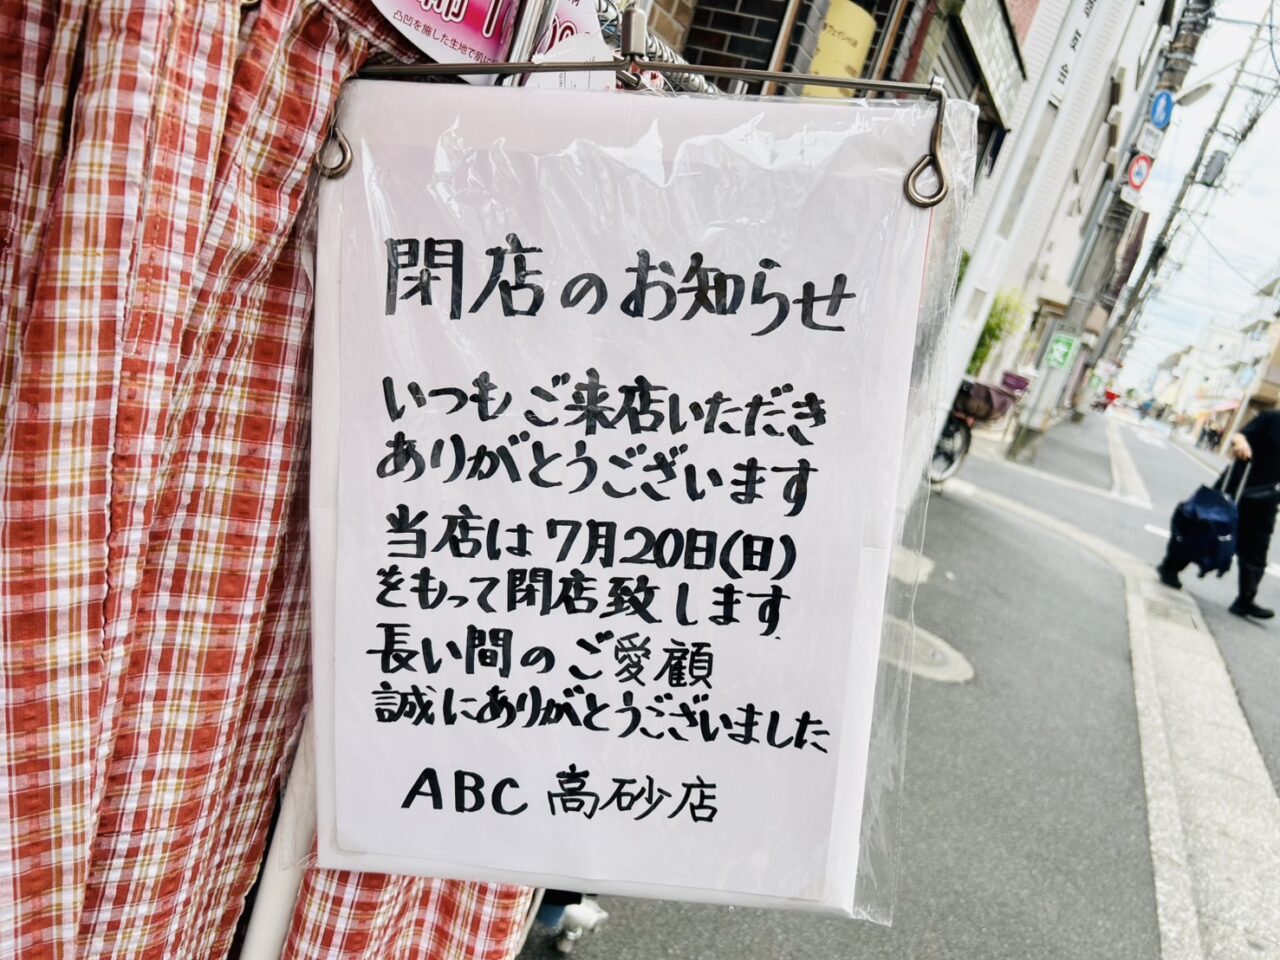 凸凹を施した生地で肌に
閉店のお知らせ
いつもご来店いただき
ありがとうございます
当店は7月20日(日)
をもって閉店致します
長い間のご愛顧
誠にありがとうございました
ABC 高砂店